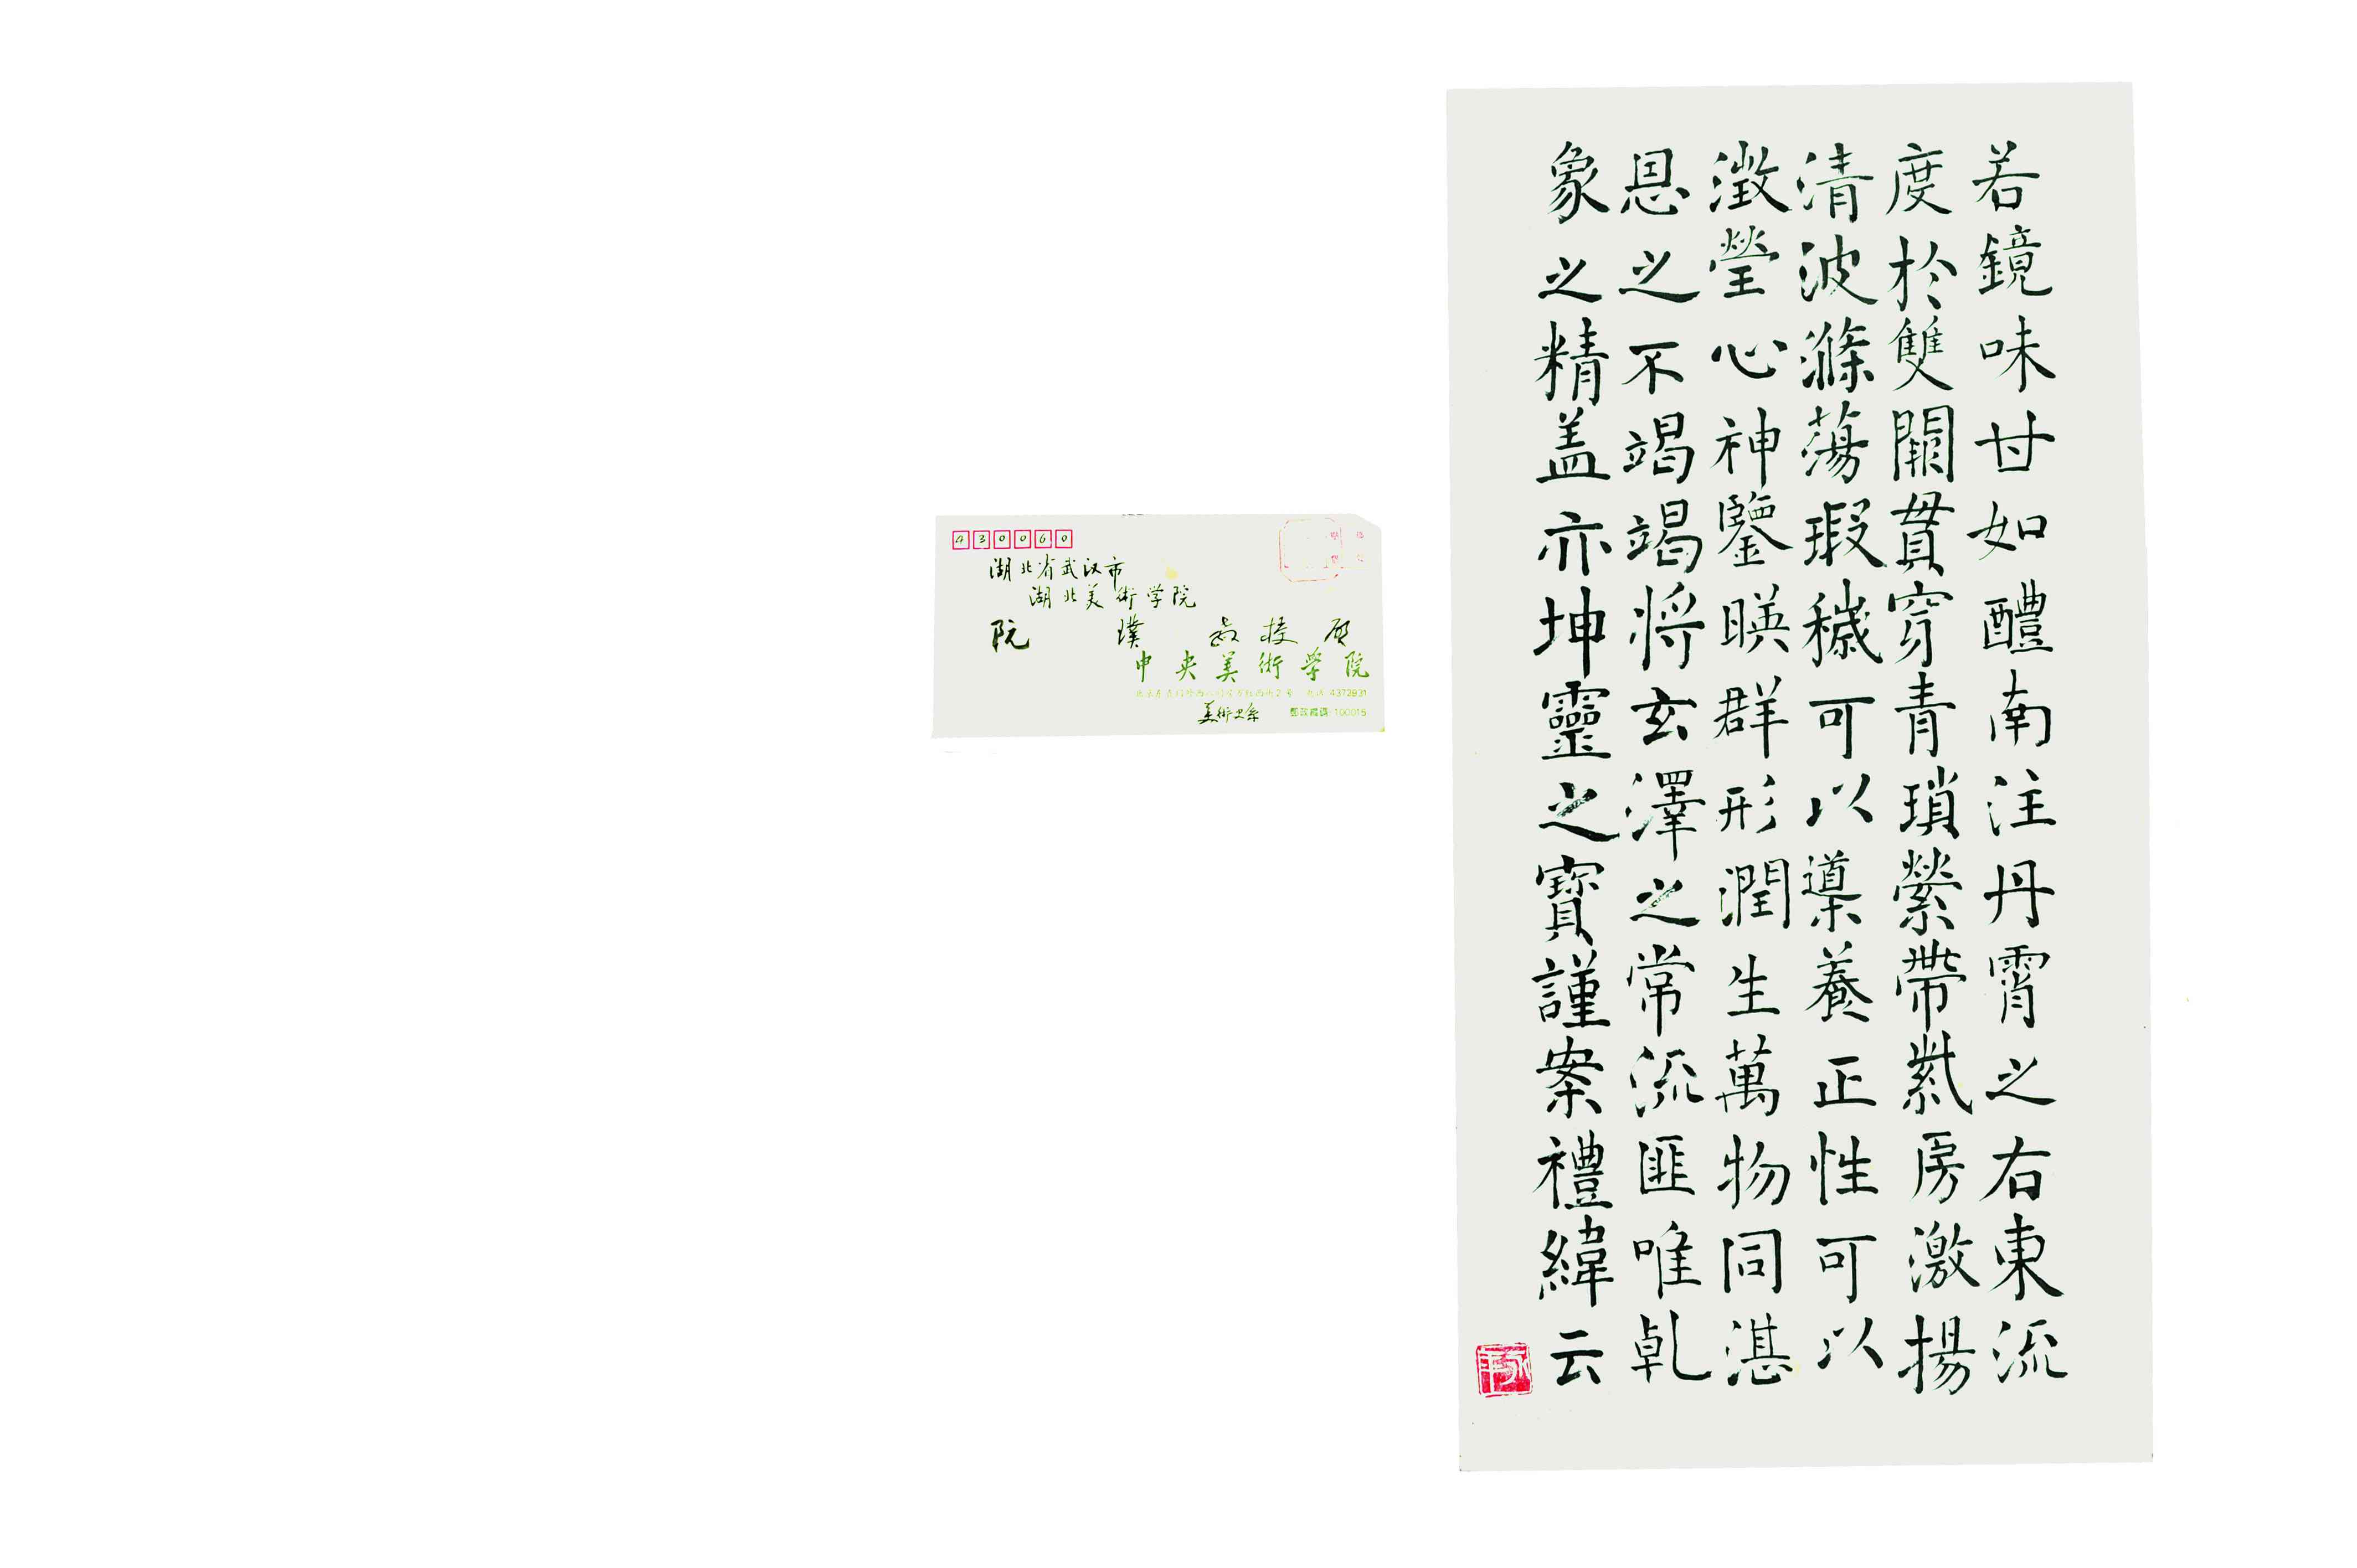 430060
湖北省武汉市
湖北美術学院
阮 璞 教授 启
中央美術学院
2号 电话 4372931
美術史系 邮政编码:100015
若鏡味甘如醴南注丹霄之右東流
度於雙闕貫穿青瑣縈帶紫房激揚
清波滌蕩瑕穢可以導養正性可以
澂瑩心神鑒暎群形潤生萬物同湛
恩之不竭將玄澤之常流匪唯乹
象之精盖亦坤靈之寶謹案禮緯云